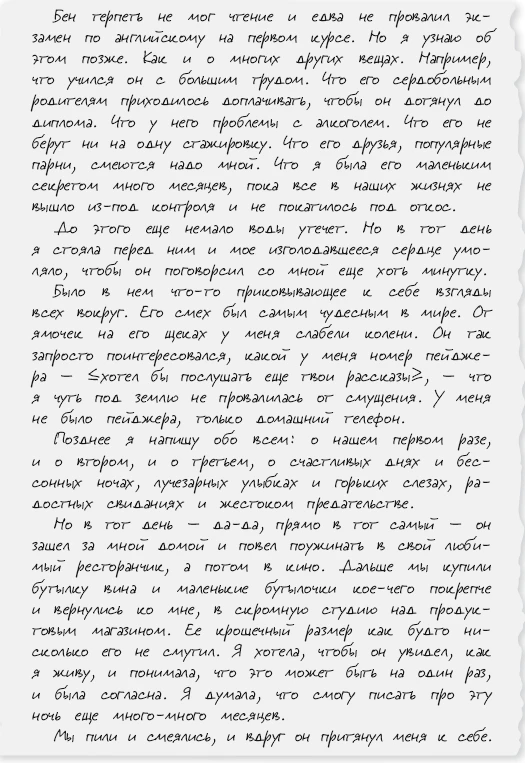 Бен терпеть не мог чтение и едва не провалил эк-
замен по английскому на первом курсе. Но я узнаю об
этом позже. Как и о многих других вещах. Например,
что учился он с большим трудом. Что его сердобольным
родителям приходилось доплачивать, чтобы он дотянул до
диплома. Что у него проблемы с алкоголем. Что его не
берут ни на одну стажировку. Что его друзья, популярные
парни, смеются надо мной. Что я была его маленьким
секретом много месяцев, пока все в наших жизнях не
вышло из-под контроля и не покатилось под откос.
До этого еще немало воды утечет. Но в тот день
я стояла перед ним и мое изголодавшееся сердце умо-
ляло, чтобы он поговорсил со мной еще хоть минутку.
Было в нем что-то приковывающее к себе взгляды
всех вокруг. Его смех был самым чудесным в мире. От
ямочек на его щеках у меня слабели колени. Он так
запросто поинтересовался, какой у меня номер пейдже-
ра — ≤хотел бы послушать еще твои рассказы≥, — что
я чуть под землю не провалилась от смущения. У меня
не было пейджера, только домашний телефон.
Позднее я напишу обо всем: о нашем первом разе,
и о втором, и о третьем, о счастливых днях и бес-
сонных ночах, лучезарных улыбках и горьких слезах, ра-
достных свиданиях и жестоком предательстве.
Но в тот день — да-да, прямо в тот самый — он
зашел за мной домой и повел поужинать в свой люби-
мый ресторанчик, а потом в кино. Дальше мы купили
бутылку вина и маленькие бутылочки кое-чего покрепче
и вернулись ко мне, в скромную студию над продук-
товым магазином. Ее крошечный размер как будто ни-
сколько его не смутил. Я хотела, чтобы он увидел, как
я живу, и понимала, что это может быть на один раз,
и была согласна. Я думала, что смогу писать про эту
ночь еще много-много месяцев.
Мы пили и смеялись, и вдруг он притянул меня к себе.